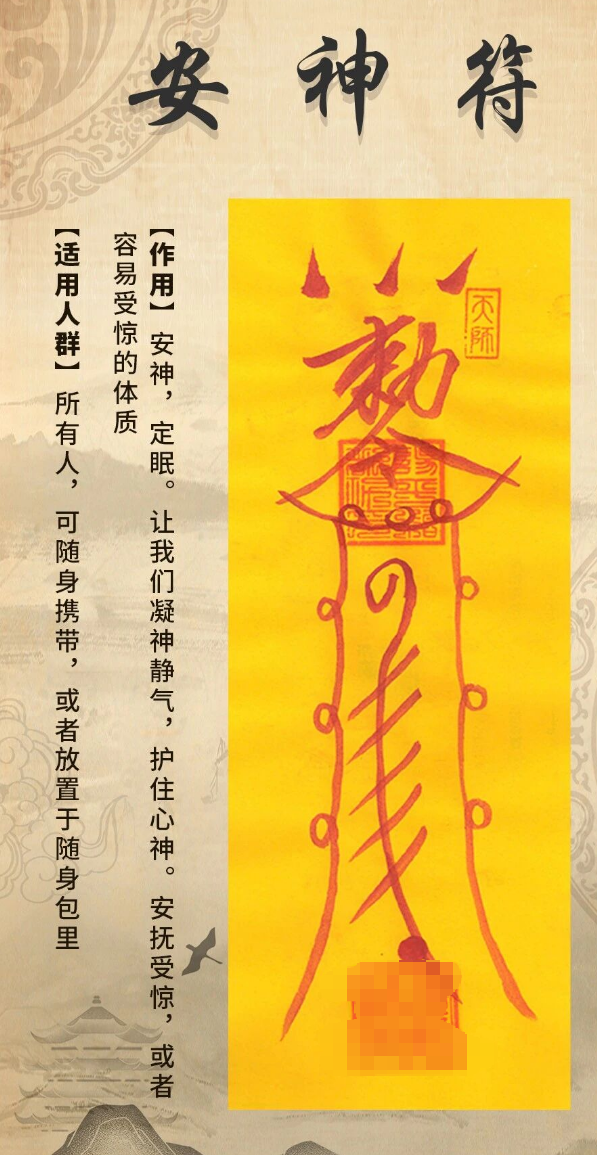 安神符
【作用】安神，定眠。让我们凝神静气，护住心神。安抚受惊，或者
容易受惊的体质
【适用人群】所有人，可随身携带，或者放置于随身包里
天師
敕令